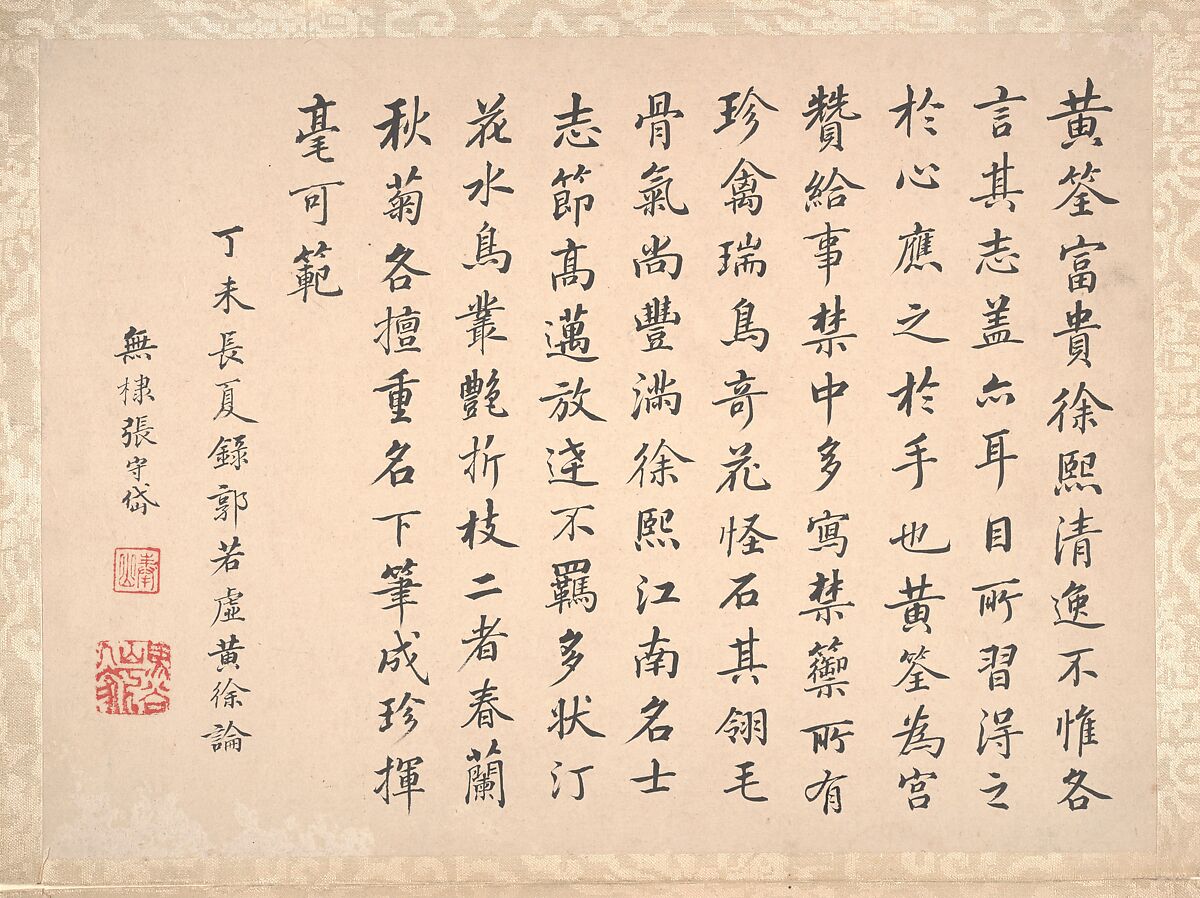 黃筌富貴徐熙清逸不惟各
言其志盖亦耳目所習淂之
於心應之於手也黃筌為宮
贊給事禁中多寫禁籞所有
珍禽瑞鳥奇花怪石其翎毛
骨氣尚豐滿徐熙江南名士
志節高邁放逹不羈多狀汀
花水鳥叢艷折枝二者春蘭
秋菊各擅重名下筆成珍揮
毫可範
丁未長夏錄郭若虛黃徐論
無棣張守岱